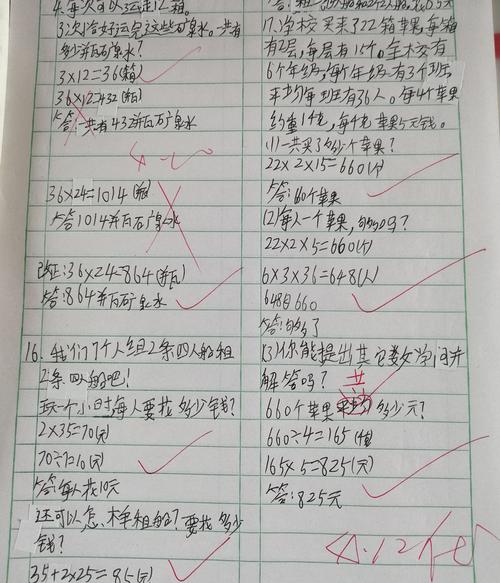 4.每次可以运走12箱。
3次恰好运完这些矿泉水。一共有
多少瓶矿泉水?
3×12=36(箱)
36×12=432(瓶)
答:一共有432瓶矿泉水
36×24=1014(瓶)
答1014瓶矿泉水
改正:36×24=864(瓶)
答:864瓶矿泉水
16.我们7个人组2条四人船租
2条四人船吧!
玩一个小时每人要花多少钱?
2×35=70(元)
70÷7=10(元)
答每人花10元
还可以怎样租船?要花多少
钱?
35+2×25=85(元)
17.学校买来了22箱苹果,每箱
有2层,每层有15个。全校有
6个年级,每个年级有3个班,
平均每班有36人。每4个苹果
约重1千克,每千克苹果5元钱。
(1)一共买了多少个苹果?
22×2×15=660(个)
答:660个苹果
(2)每人一个苹果,够吗?
22×2×5=660(个)
6×3×36=648(人)
648 660
答:够了
(3)你能提出其它数学问并
解答吗? 共
660个苹果 多少元?
660÷4=165(千克)
165×5=825(元)
答:825元